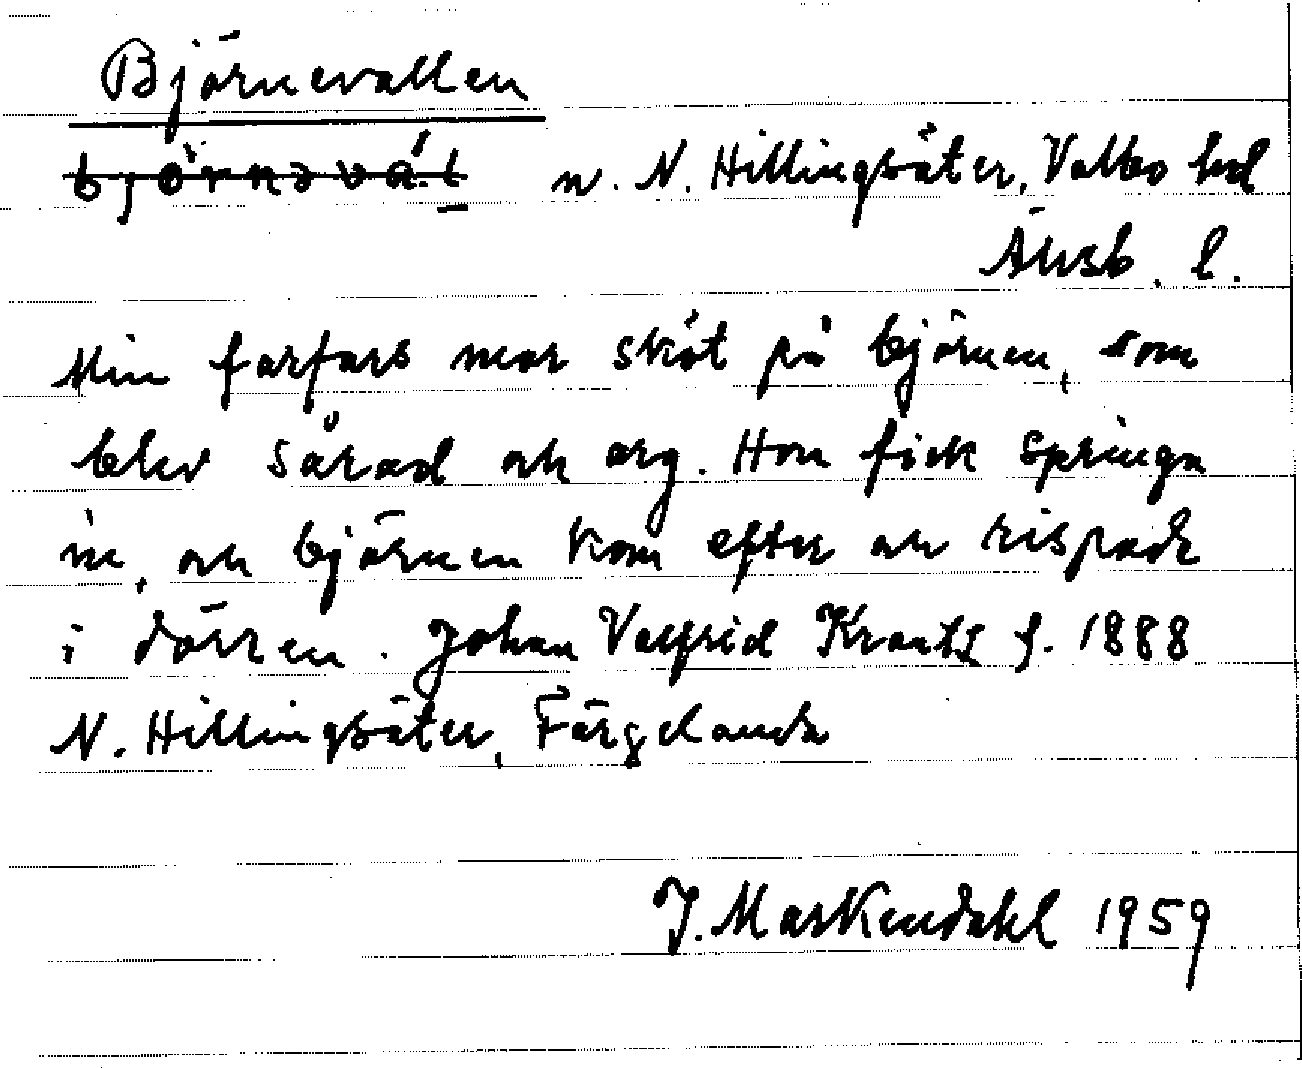 Björnevallen
björnəvál n. N. Hillingsäter, Valbo hd
Älvsb. l.
Min farfars mor sköt på björnen, som
blev sårad och arg. Hon fick springa
in, och björnen kom efter och rispade
i dörren. Johan Valfrid Krantz f. 1888
N. Hillingsäter, Färgelanda
J. Maskendahl 1959